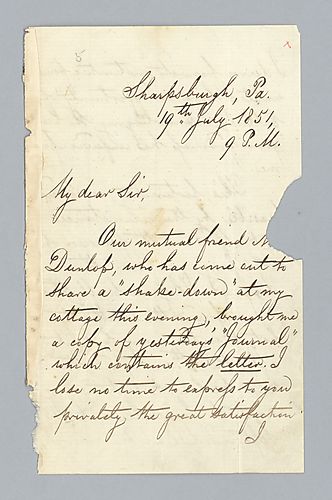 5
Sharpsburgh, Pa.
19th July 1851,
9 P.M.
My dear Sir,
Our mutual friend
Dunlop, who has come out to
share a "shake-down" at my
cottage this evening, brought me
a copy of yesterday's "Journal"
which contains the letter. I
lose no time to express to you
privately the great satisfaction
I